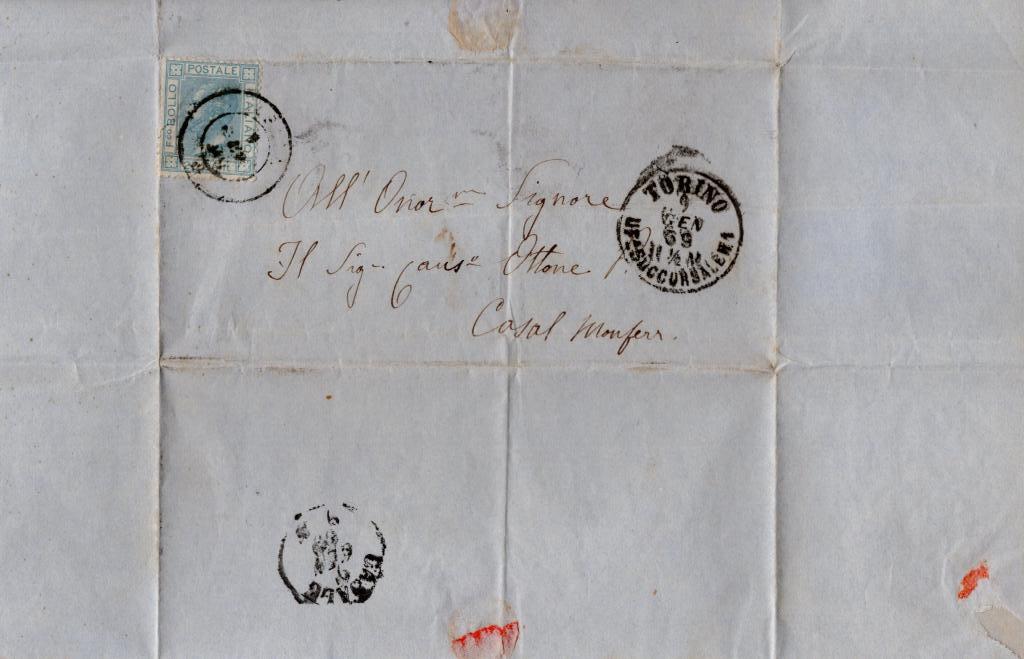 POSTALE
F.co BOLLO
ITALIANO
All' Onor.m Signore
Il Sig.r Caus.e Ottone
Casal Monferr.
TORINO
9
GEN
69
11 ½ M
UF.o SUCCURSALE N.1
CASALE